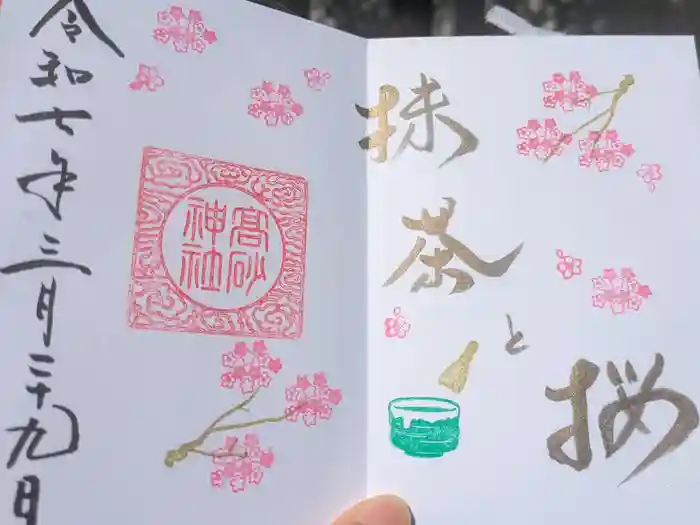 抹茶
と
桜
髙砂
神社
令和七年三月二十九日